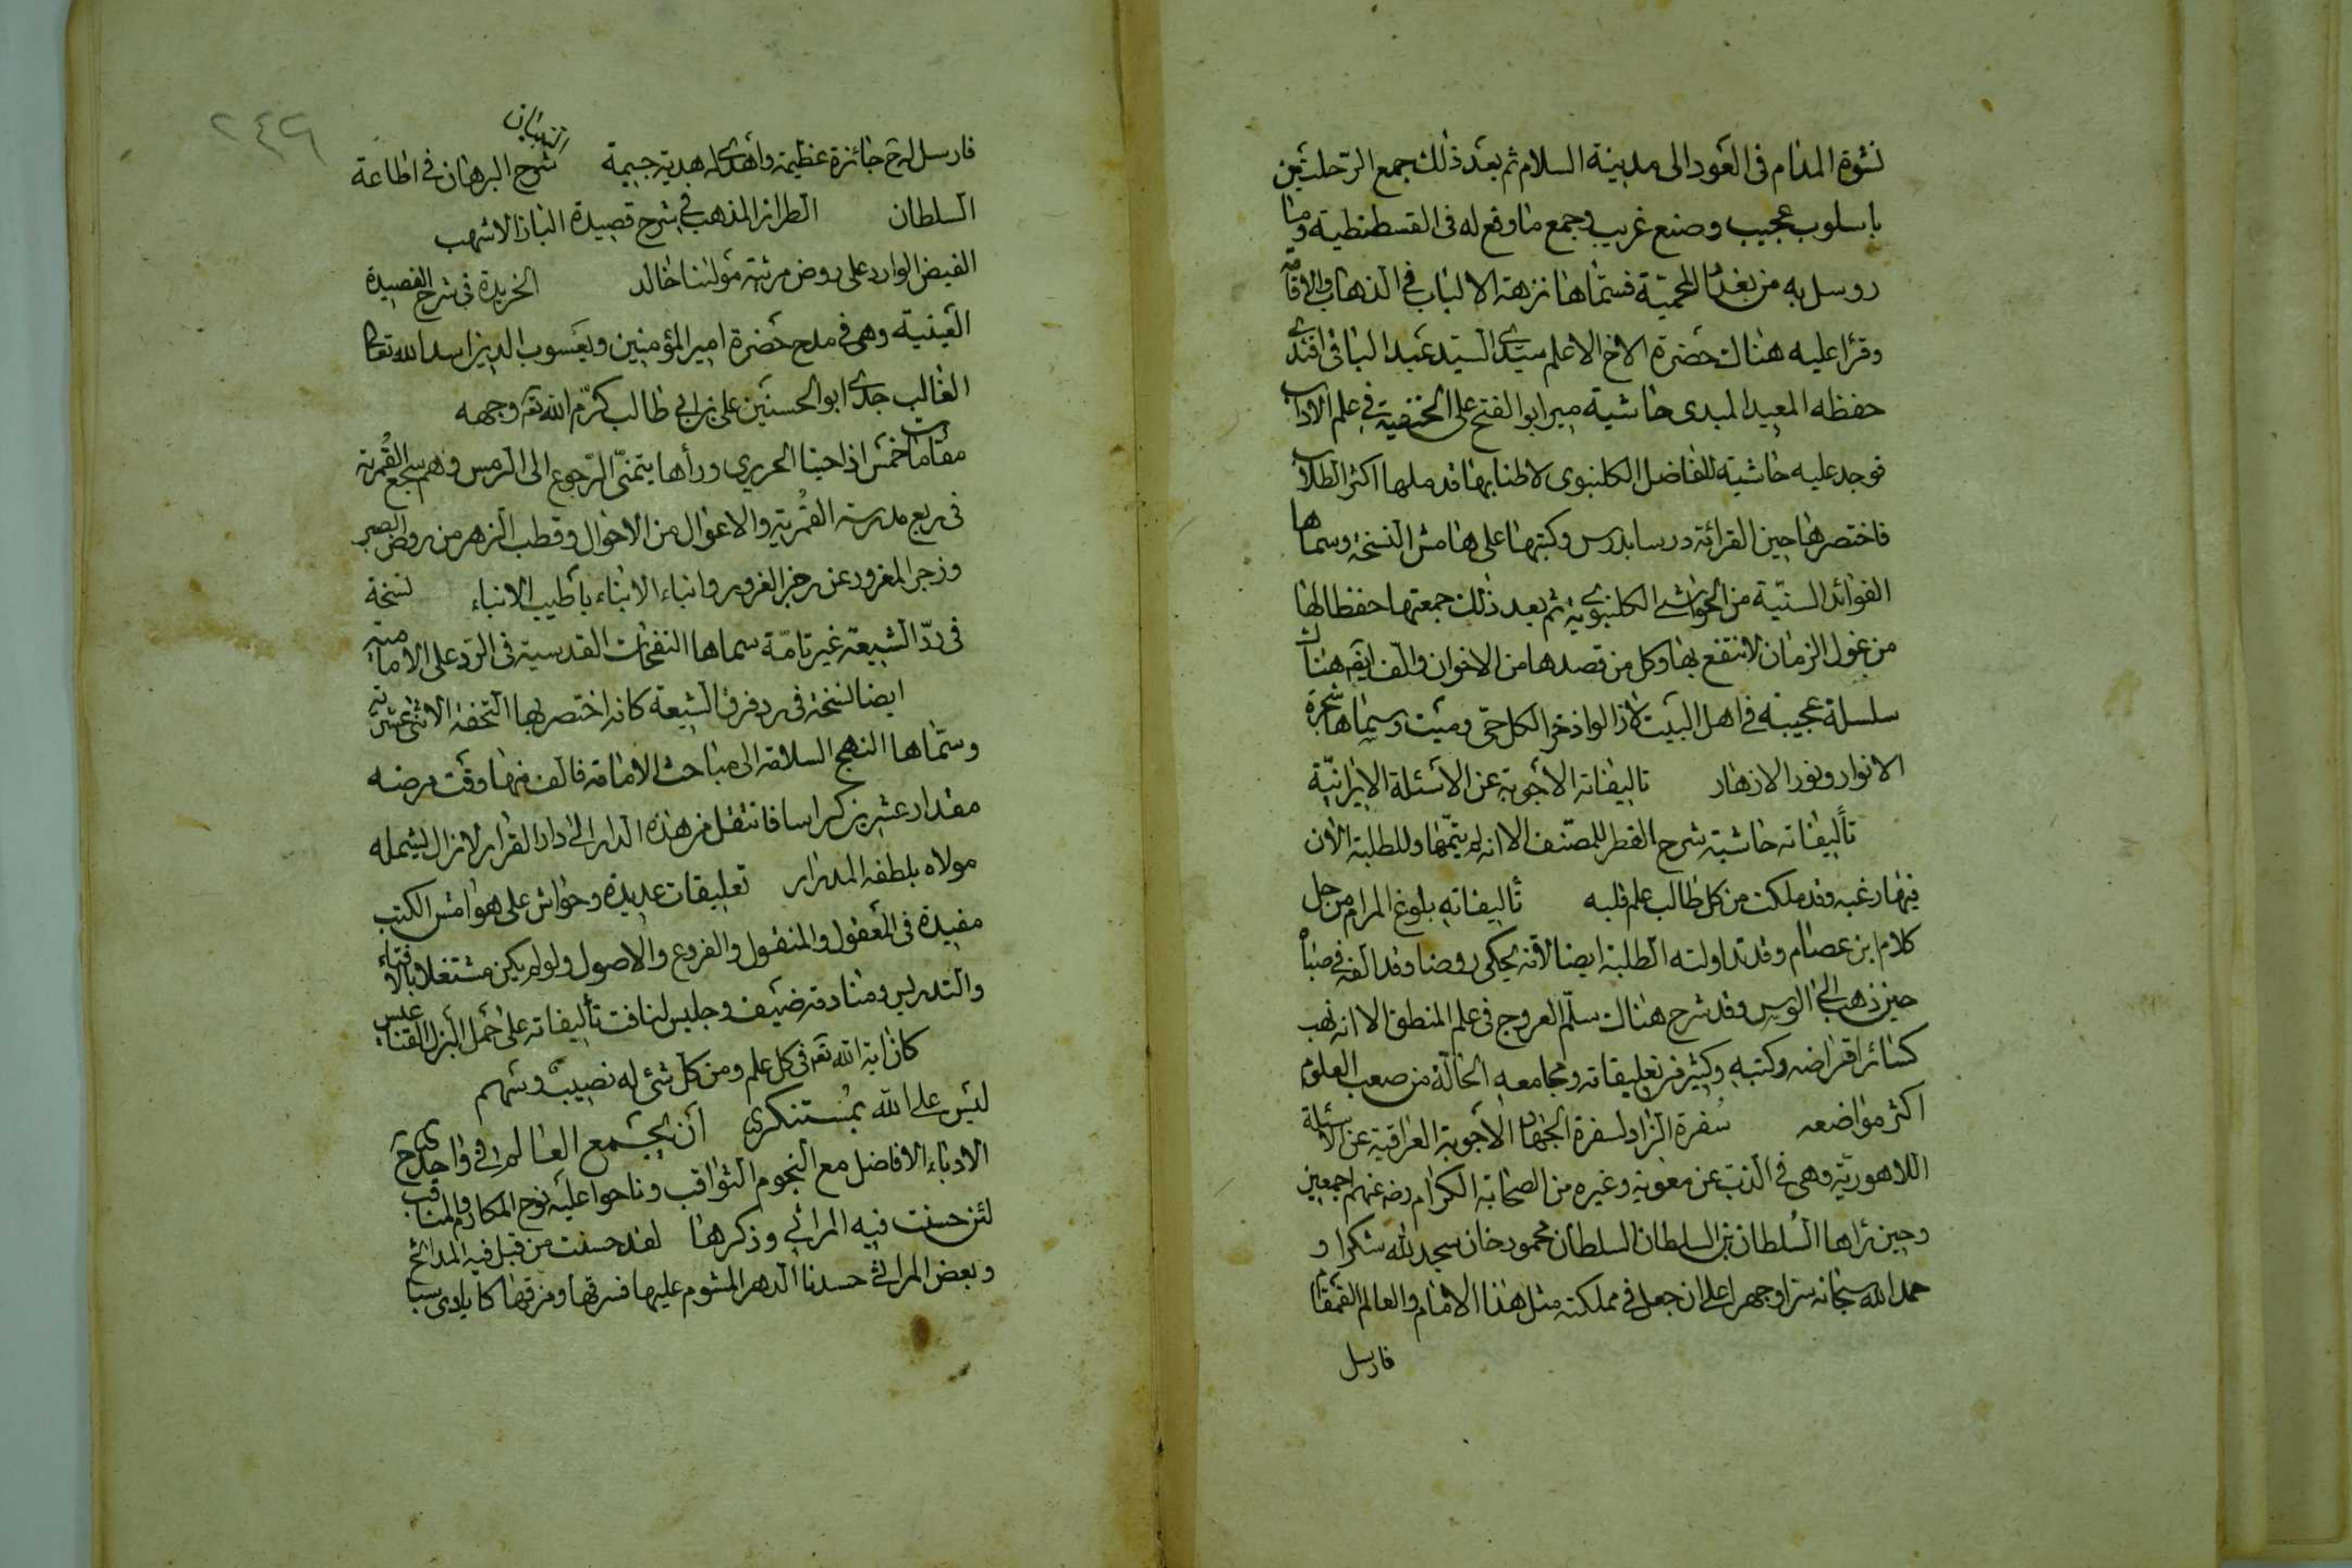 نشوة المدام فى العود الى مدينة السلام ثم بعد ذلك جمع الرحلتين
باسلوب عجيب وصنع غريب وجمع ما وقع له فى القسطنطية وما
روسل به من بغداد المحمية فسماها نزهة الالباب فى الذهاب والاقامة
وقرا عليه هناك حضرة الاخ الاعلم سيدى السيد عبد الباقى افندى
حفظه المعيد المبدى حاشية مير ابو الفتح على الحنفية فى علم الاداب
فوجد عليه حاشية للفاضل الكلنبوى لاطنابها قد ملها اكثر الطلاب
فاختصرها حين القرائة درسا بدرس وكتبها على هامش النسخة وسماها
الفوائد السنية من الحواشى الكلنبوية ثم بعد ذلك جمعتها حفظا لها
من غول الزمان لانتفع بها وكل من قصدها من الاخوان والف ايضا هناك
سلسلة عجيبة فى اهل البيت لازالوا ذخرا لكل حى وميت وسماها شجرة
الانوار ونور الازهار تاليفاته الاجوبة عن الاسئلة الايرانية
تأليفاته حاشية شرح القطر للمصنف الا انه لم يتمها وللطلبة الان
فيها رغبه وقد ملكت من كل طالب علم قلبه تأليفاته بلوغ المرام من حل
كلام ابن عصام وقد تداولته الطلبة ايضا لانه يحكى روضا وقد الفه فى صباه
حين ذهب الى الويس وقد شرح هناك سلم العروج فى علم المنطق الا انه نهب
كسائر اقراضه وكتبه وكثير من تعليقاته ومجامعه الحالة من صعب العلوم
اكثر مواضعه سفرة الزاد لسفرة الجهاد الاجوبة العراقية عن الاسئلة
اللاهورية وهى فى الذب عن معوية وغيره من الصحابة الكرام رضه عنهم اجمعين
وحين رأها السلطان بن السلطان السلطان محمود خان سجد لله شكرا و
حمد الله سبحانه سرا وجهرا على ان جعل فى مملكته مثل هذا الامام والعالم القمقام
فارسل
٢٤٦
فارسل له جائزة عظيمة واهدى له هدية جسيمة شرح البرهان فى اطاعة
السلطان الطراز المذهب فى شرح قصيدة الباز الاشهب
الفيض الوارد على روض مرثية مولينا خالد الخريدة فى شرح القصيدة
العينية وهى فى مدح حضرة امير المؤمنين ويعسوب الدين اسد الله تعالى
الغالب جدى ابو الحسنين على بن ابى طالب كرم الله تع وجهه
مقامات خمس اذا حيا الحريرى ورأها يتمنى الرجوع الى الرمس وهم سجع القمرية
فى ربع مدرسة القمرية والاعوال من الاخوال وقطب الزهر من روض الصبر
وزجر المغرور عن رجز الغرور وانباء الابناء بأطيب الانباء نسخة
فى رد الشيعة غير تامة سماها النفحات القدسية فى الرد على الامامية
ايضا نسخة فى رد فرق الشيعة كانه اختصر بها التحفة الاثنى عشرية
وسماها النهج السلامة الى مباحث الامامة فالف منها وقت مرضه
مقدار عشرين كراسا فانتقل من هذه الدار الى دار القرار لازال يشمله
مولاه بلطفه المدرار تعليقات عديدة وحواش على هوامش الكتب
مفيدة فى المعقول والمنقول والفروع والاصول ولو لم يكن مشتغلا بالافتاء
والتدريس ومنادمة ضيف وجليس لنافت تأليفاته على احمل البزل القناعيس
كان اية الله تع فى كل علم ومن كل شئ له نصيب وسهم
ليس على الله بمستنكرى أن يجمع العالم فى واحد
الادباء الافاضل مع النجوم الثواقب وناحوا عليه نوح المكارم والمناقب
لئن حسنت فيه المراثى وذكرها لقد حسنت من قبل فيه المدائح
وبعض المراثى حسدنا الدهر المشوم عليها فسرقها ومزقها كايادى سبا